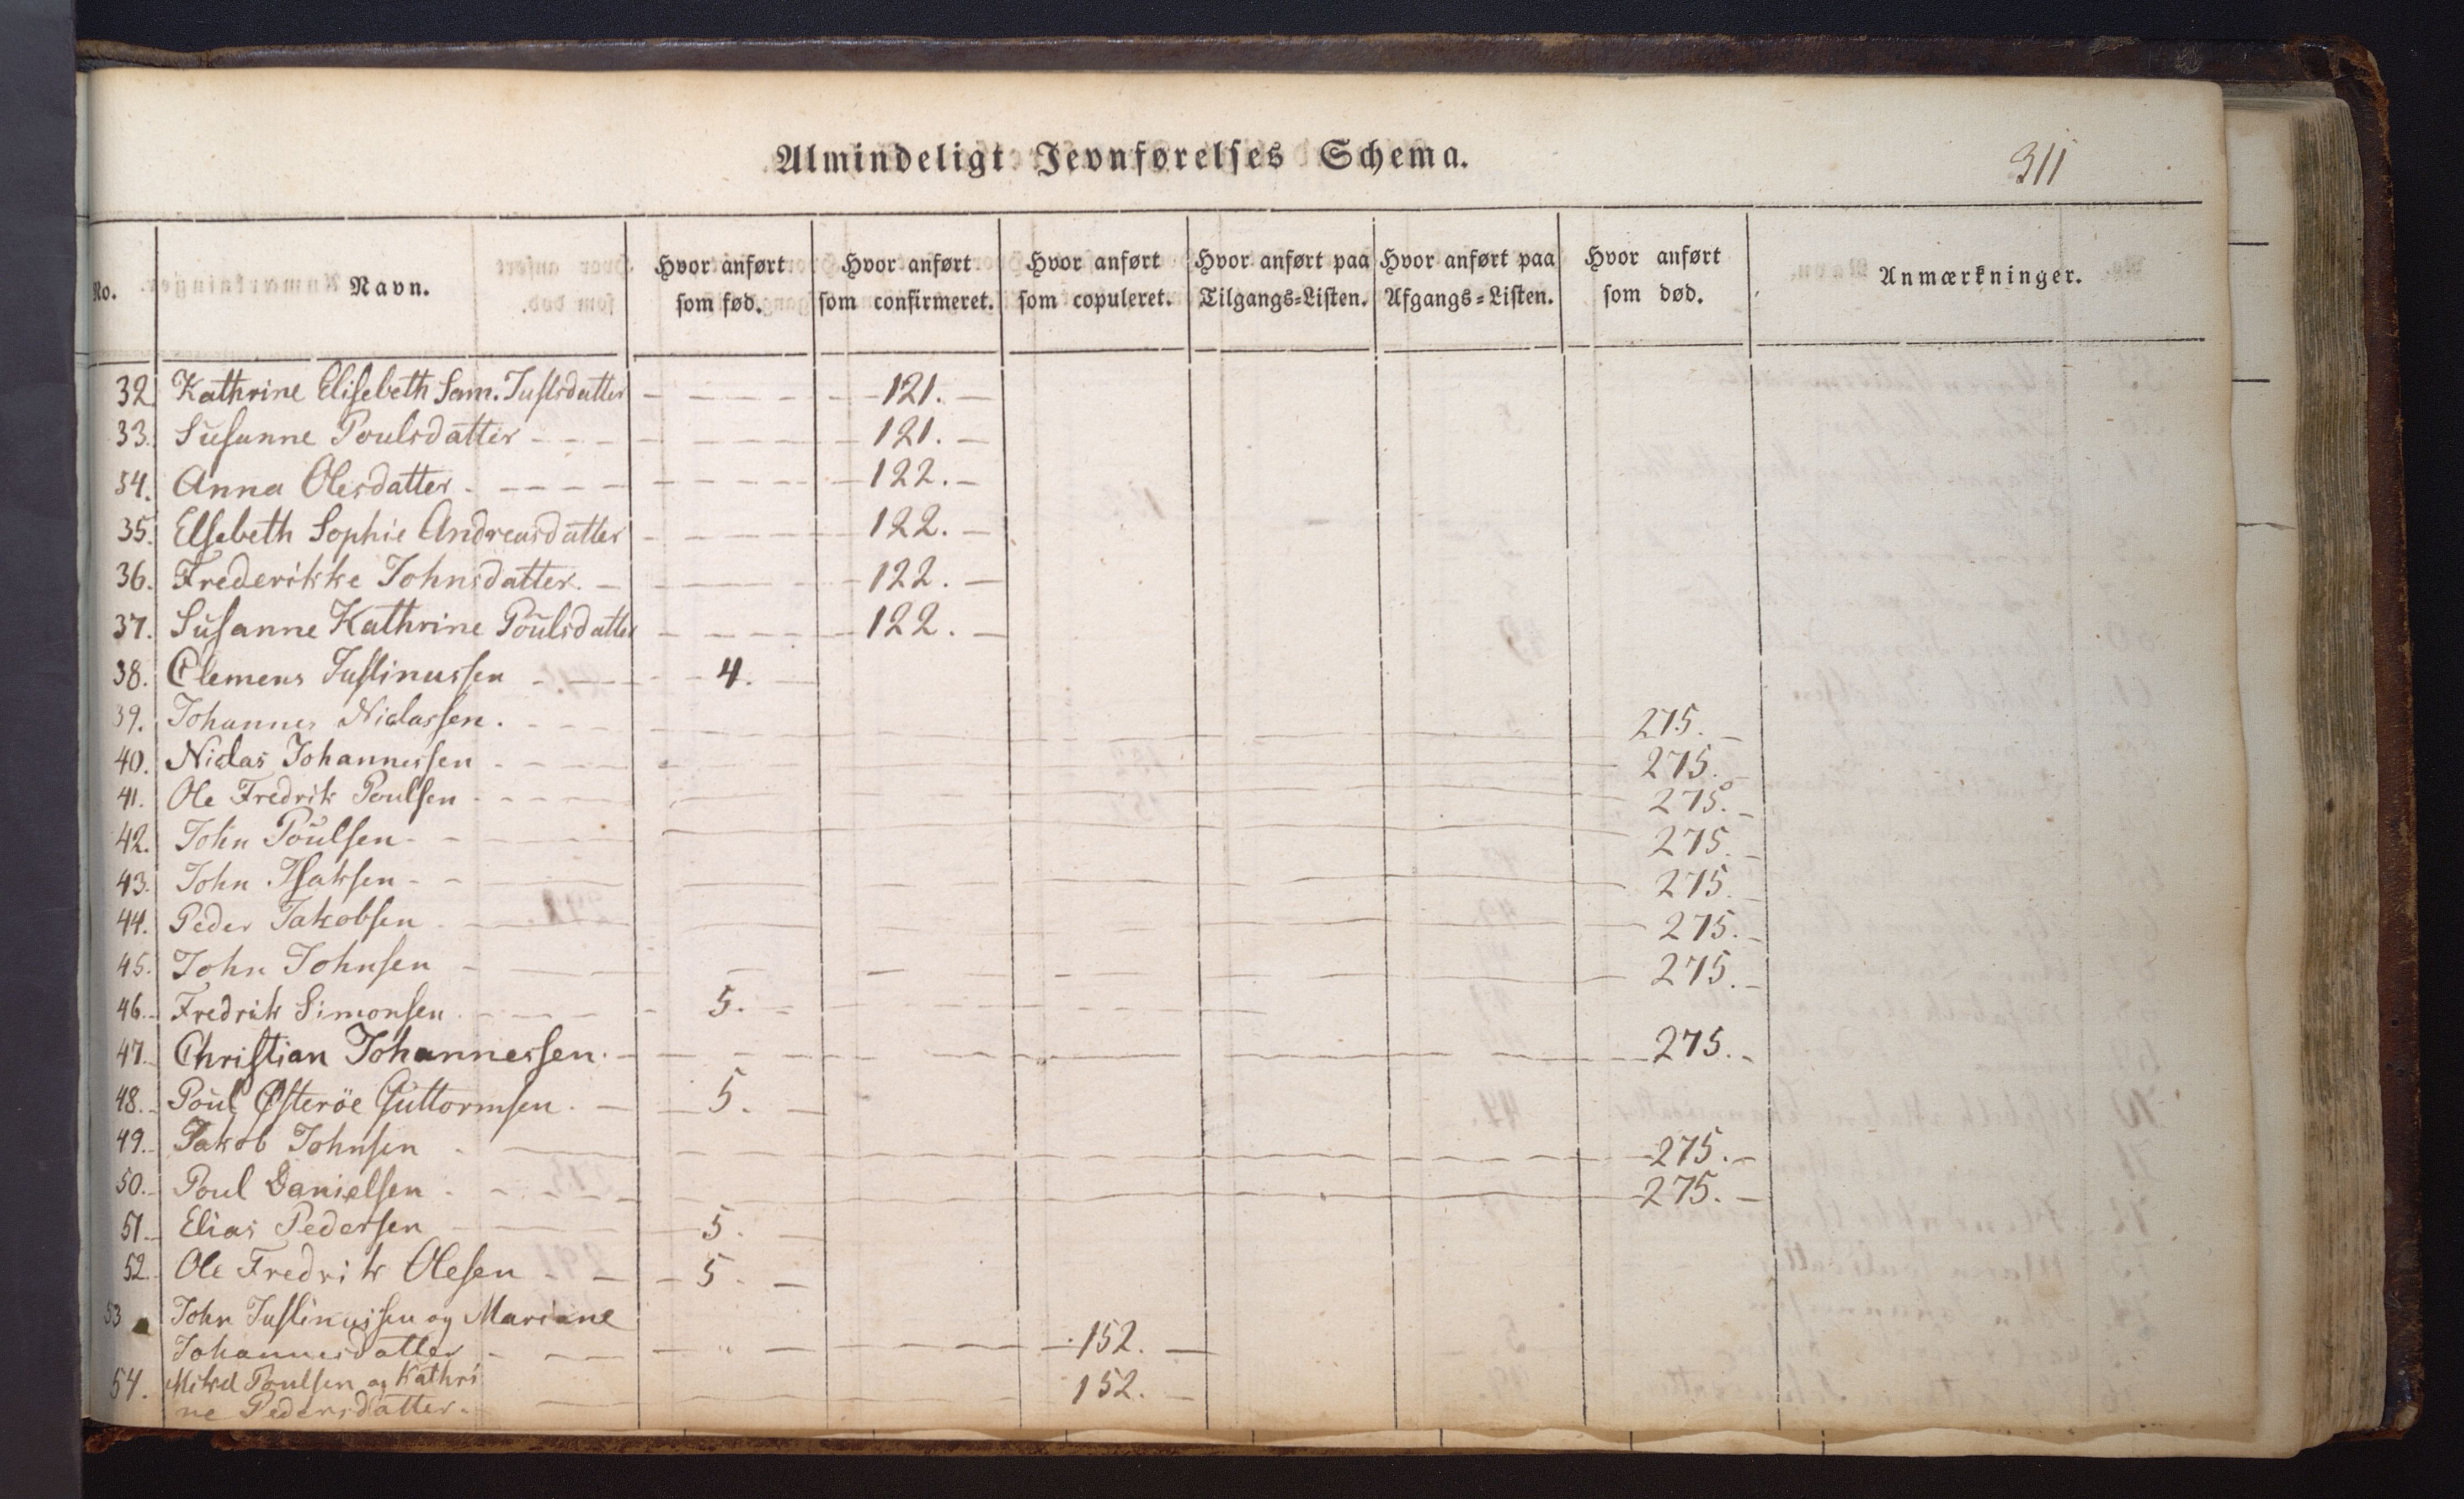 Almindeligt Jevnførelses Schema.
311
No. Navn. Hvor anført som fød. Hvor anført som confirmeret. Hvor anført som copuleret. Hvor anført paa Tilgangs=Listen. Hvor anført paa Afgangs=Listen. Hvor anført som død. Anmærkninger.
32. Kathrine Elisebeth Sam. Justsdatter 121.
33. Susanne Poulsdatter 121.
34. Anna Olesdatter 122.
35. Elsebeth Sophie Andreasdatter 122.
36. Frederikke Johnsdatter 122.
37. Susanne Kathrine Poulsdatter 122.
38. Clemens Justinussen 4.
39. Johannes Niclassen. 275.
40. Niclas Johannessen 275.
41. Ole Fredrik Poulsen 275.
42. John Poulsen 275.
43. John Isaksen 275.
44. Peder Jakobsen 275.
45. John Johnsen 275.
46. Fredrik Simonsen 5.
47. Christian Johannessen. 275.
48. Poul Østerøe Guttormsen. 5.
49. Jakob Johnsen 275.
50. Poul Danielsen 275.
51. Elias Pedersen 5.
52. Ole Fredrik Olesen 5.
53 John Justinussen og Mariane
Johannesdatter 152.
54. Mikel Poulsen og Kathri 152.
ne Pedersdatter.